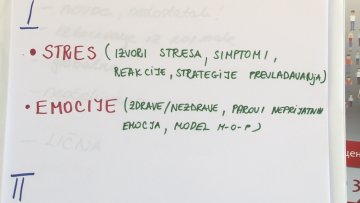 I
• STRES (IZVORI STRESA, SIMPTOMI,
REAKCIJE, STRATEGIJE PREVLADAVANJA)
• EMOCIJE (ZDRAVE/NEZDRAVE, PAROVI NEPRIJATNIH
EMOCIJA, MODEL M-O-P)
II
3